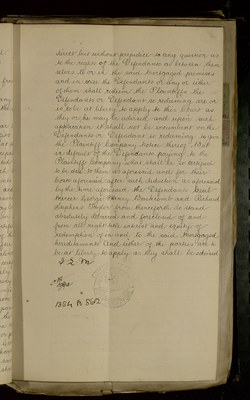 direct but without prejudice to any question as
to the rights of the Defendants as between them
selves to or in the said mortgaged premises
and in case the Defendants or any or either
of them shall redeem the Plaintiffs the
Defendants or Defendant so redeeming are or
is to be at liberty to apply to this Court as
they or he may be advised and upon such
application it shall not be incumbent on the
Defendants or Defendant so redeeming to serve
the Plaintiff Company notice thereof But
in default of the Defendants paying to the
Plaintiff Company what shall be so certified
to be due to them as aforesaid and for their
costs aforesaid after such deduction as aforesaid
by the time aforesaid the Defendants
George Henry and Richard
Stephens Taylor from thenceforth do stand
absolutely debarred and foreclosed of and
from all right title interest and equity of
redemption of in and to the said mortgaged
hereditaments And either of the parties are to
be at liberty to apply as they shall be advised